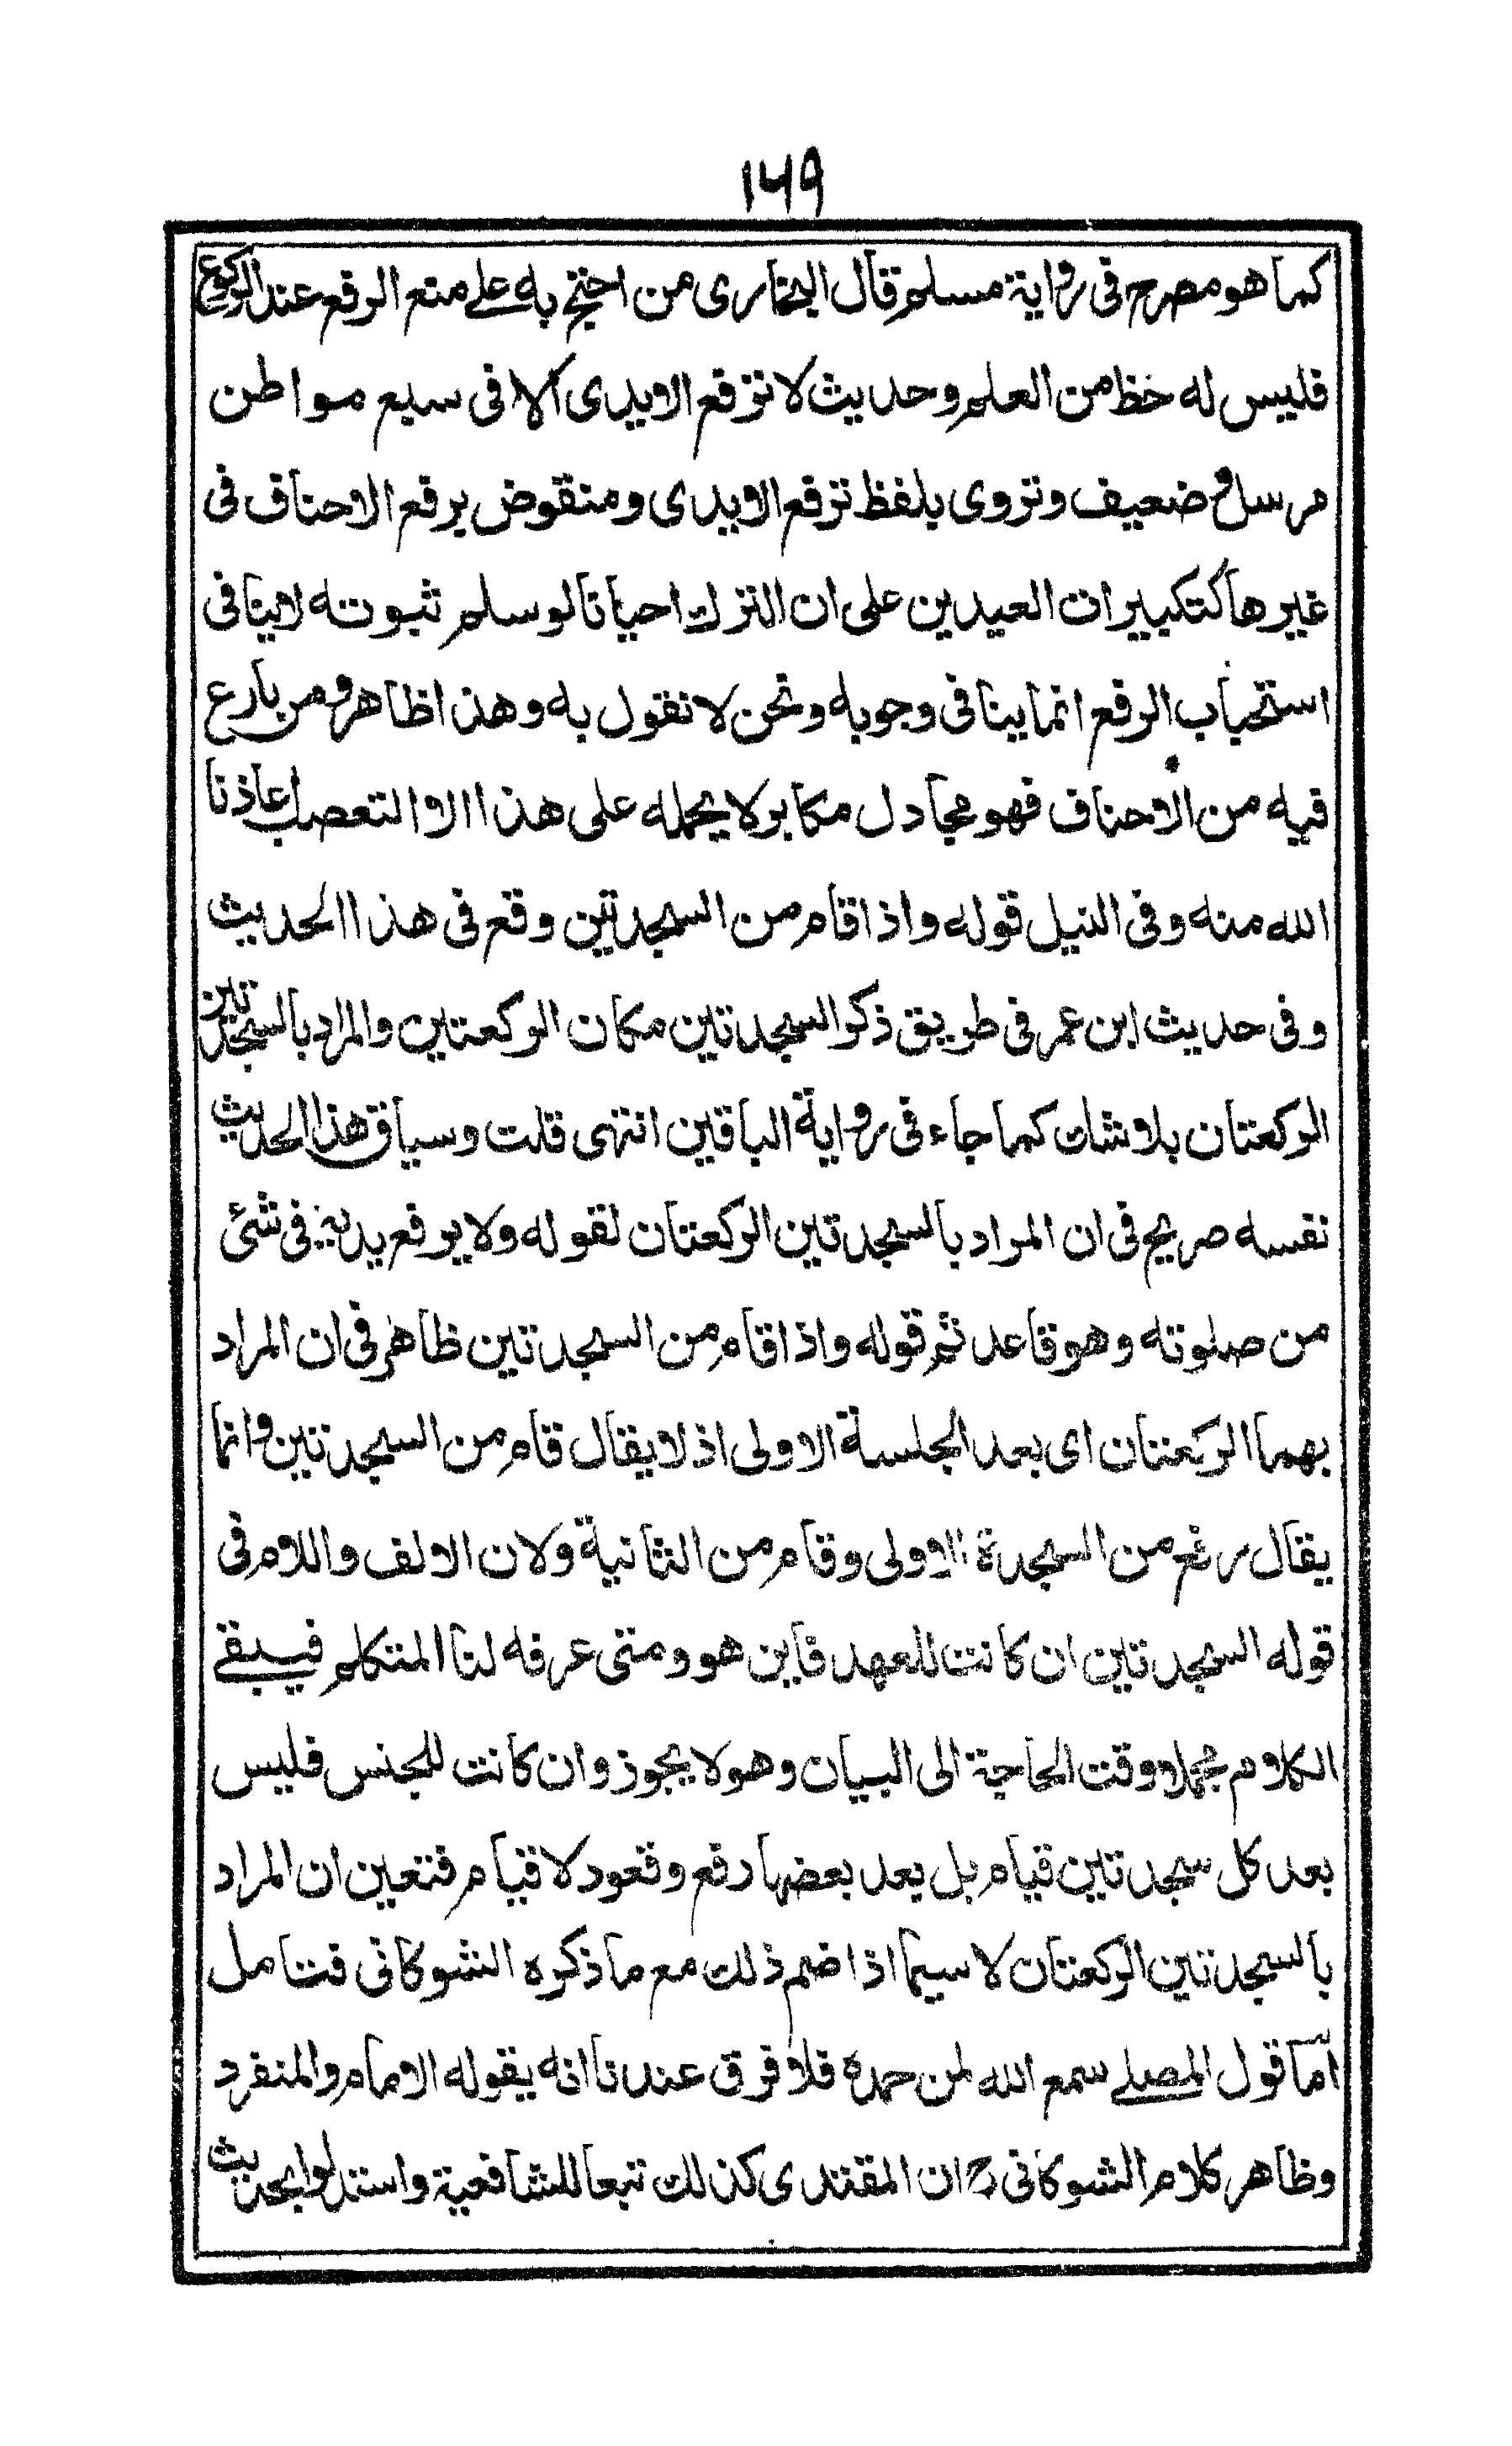 ١٦٩
كما هو مصرح فى رواية مسلم قال البخارى من احتج به على منع الرفع عند الركوع
فليس له حظ من العلم وحديث لا ترفع الايدى الا فى سبع مواطن
مرسل ضعيف وتروى بلفظ ترفع الايدى ومنقوض برفع الاحناف فى
غيرها كتكبيرات العيدين على ان الترك احيانا لو سلم ثبوته لا ينافى
استحباب الرفع انما ينافى وجوبه ونحن لا نقول به وهذا ظاهر ومن نازع
فيه من الاحناف فهو مجادل مكابر لا يحمله على هذا الا التعصب اعاذنا
الله منه وفى النيل قوله واذا قام من السجدتين وقع فى هذا الحديث
وفى حديث ابن عمر فى طريق ذكر السجدتين مكان الركعتين والمراد بالسجدتين
الركعتان بلا شك كما جاء فى رواية الباقين انتهى قلت وسياق هذا الحديث
نفسه صريح فى ان المراد بالسجدتين الركعتان لقوله ولا يرفع يديه فى شئ
من صلوته وهو قاعد ثم قوله واذا قام من السجدتين ظاهر فى ان المراد
بهما الركعتان اى بعد الجلسة الاولى اذ لا يقال قام من السجدتين وانما
يقال رفع من السجدة الاولى وقام من الثانية ولان الالف واللام فى
قوله السجدتين ان كانت للعهد فاين هو ومتى عرفه لنا المتكلم فيبقے
الكلام مجملا وقت الحاجة الى البيان وهو لا يجوز وان كانت للجنس فليس
بعد كل سجدتين قيام بل بعد بعضها رفع وقعود لا قيام فتعين ان المراد
بالسجدتين الركعتان لا سيما اذا ضم ذلك مع ما ذكره الشوكانى فتامل
اما قول المصلے سمع الله لمن حمده فلا فرق عندنا انه يقوله الامام والمنفرد
وظاهر كلام الشوكانى رح ان المقتدى كذلك تبعا للشافعية واستدلوا بحديث